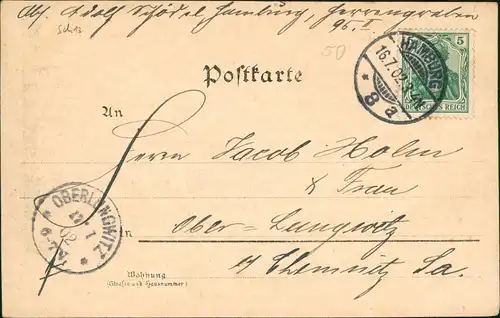 Abs. Adolf Schödel, Hamburg, Herrengraben
95. I
50
Postkarte
HAMBURG
16.7.02.
* 8 a
5
DEUTSCHES REICH
An
Herrn Jacob Holm
& Frau
OBERLUNGWITZ
17 7
02
6-7N
in Ober-Lungwitz
b/ Chemnitz Sa.
Wohnung
(Straße und Hausnummer)